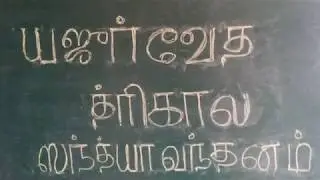 யஜுர்வேத
த்ரிகால
ஸந்த்யாவந்தனம்